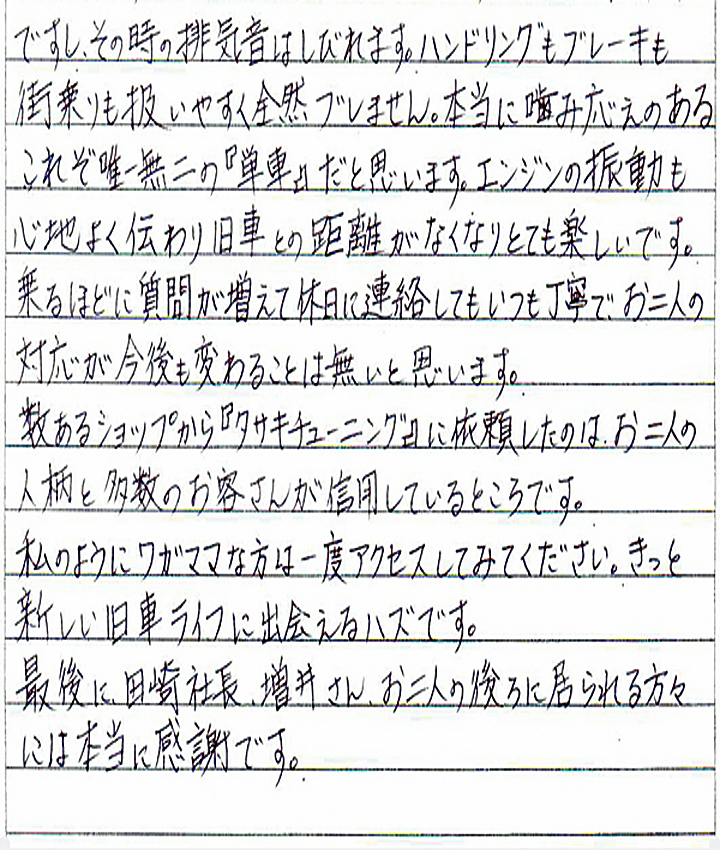 ですし、その時の排気音はしびれます。ハンドリングもブレーキも
街乗りも扱いやすく全然ブレません。本当に噛み応えのある
これぞ唯一無二の『単車』だと思います。エンジンの振動も
心地よく伝わり旧車との距離がなくなりとても楽しいです。
乗るほどに質問が増えて休日に連絡してもいつも丁寧で、お二人の
対応が今後も変わることは無いと思います。
数あるショップから『タサキチューニング』に依頼したのは、お二人の
人柄と多数のお客さんが信用しているところです。
私のようにワガママな方は一度アクセスしてみてください。きっと
新しい旧車ライフに出会えるハズです。
最後に、田崎社長、増井さん、お二人の後ろに居られる方々
には本当に感謝です。